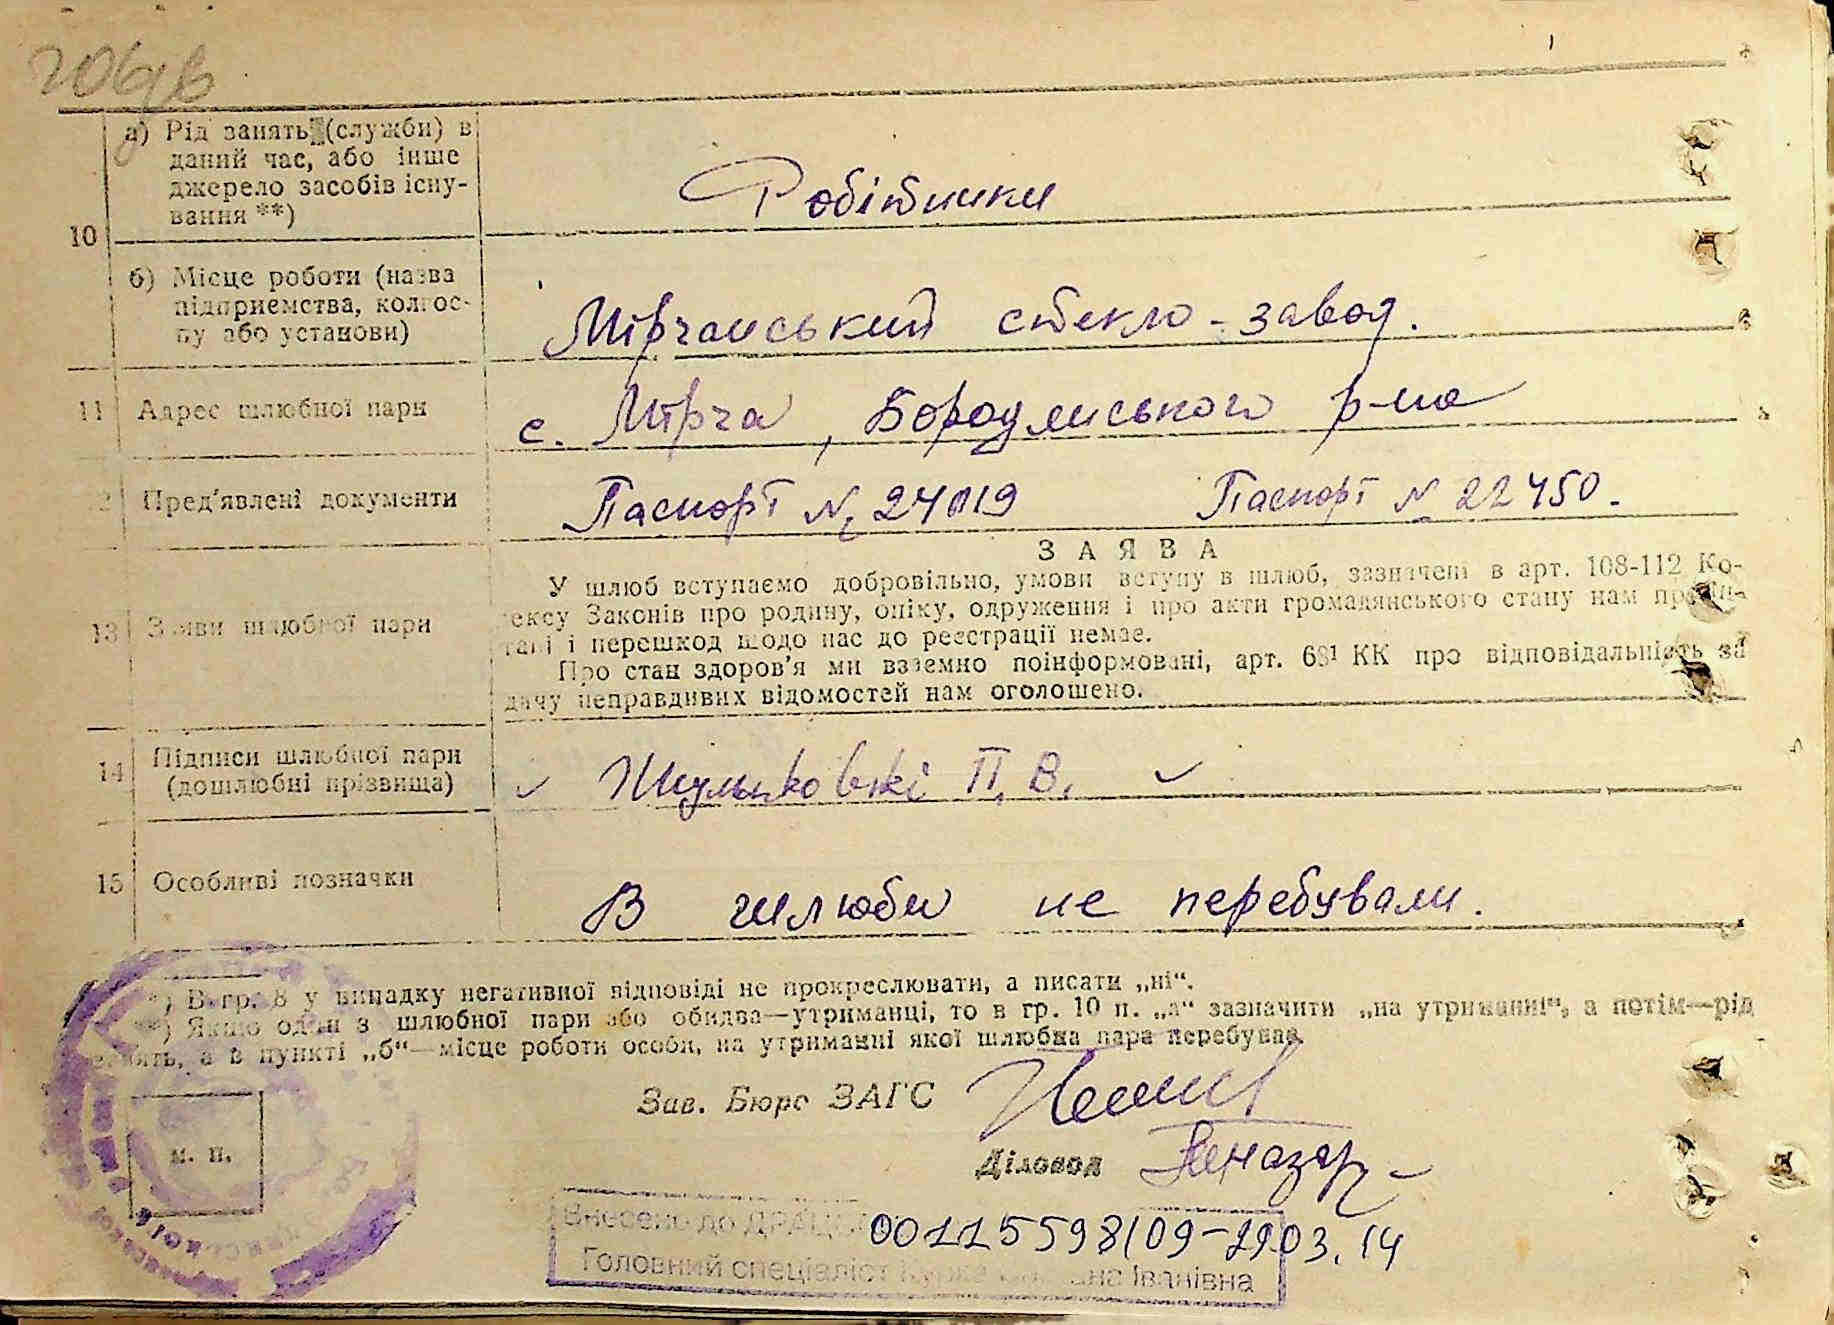 а) Рід занять (служби) в
даний час, або інше
джерело засобів існу-
вання **)
Робітники
10
б) Місце роботи (назва
підприємства, колгос-
пу або установи)
Мірчанський стекло-завод.
11 Адрес шлюбної пари
с. Мірча, Бородянського р-на
12 Пред'явлені документи
Паспорт № 24019 Паспорт № 22450.
13 Заяви шлюбної пари
ЗАЯВА
У шлюб вступаємо добровільно, умови вступу в шлюб, зазначені в арт. 108-112 Ко-
дексу Законів про родину, опіку, одруження і про акти громадянського стану нам прочи-
тані і перешкод щодо нас до реєстрації немає.
Про стан здоров'я ми взаємно поінформовані, арт. 68¹ КК про відповідальність за
дачу неправдивих відомостей нам оголошено.
14 Підписи шлюбної пари
(дошлюбні прізвища)
П. В.
15 Особливі позначки
В шлюби не перебували.
*) В гр. 8 у випадку негативної відповіді не прокреслювати, а писати „ні“.
**) Якщо один з шлюбної пари або обидва—утриманці, то в гр. 10 п. „а“ зазначити „на утриманні“, а потім—рід
занять, а в пункті „б“—місце роботи особи, на утриманні якої шлюбна пара перебуває.
Зав. Бюро ЗАГС
м. п.
Діловод
Внесено до ДРАЦС 00115598/09-19.03.14
Головний спеціаліст Іванівна